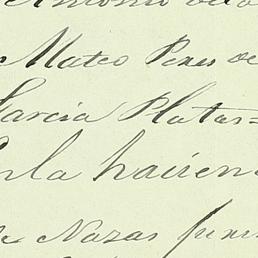 Antonio
Mateo Peres de
Garcia Platas=
Enla hacien
de Nazas juris